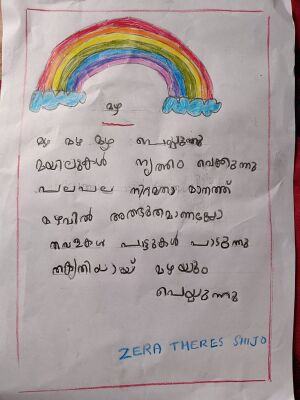 മഴ
മഴ മഴ മഴ പെയ്യുന്നു
മയിലുകൾ നൃത്തം വെക്കുന്നു
പലപല നിറമതാ മാനത്ത്
മഴവിൽ അത്ഭുതമാണല്ലോ
തവളകൾ പാട്ടുകൾ പാടുന്നു
മഴയും
പെയ്യുന്നു
ZERA THERES SHIJO